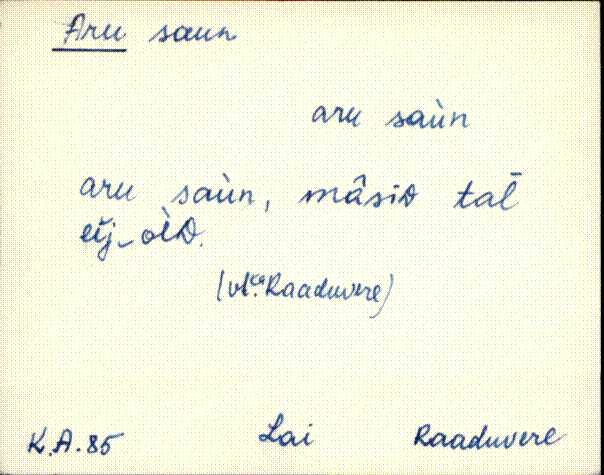 Aru saun
aru saùn
aru saùn, mâsiD tal̄
eij-òlD.
(vk. Raaduvere)
K.A.85 Lai Raaduvere